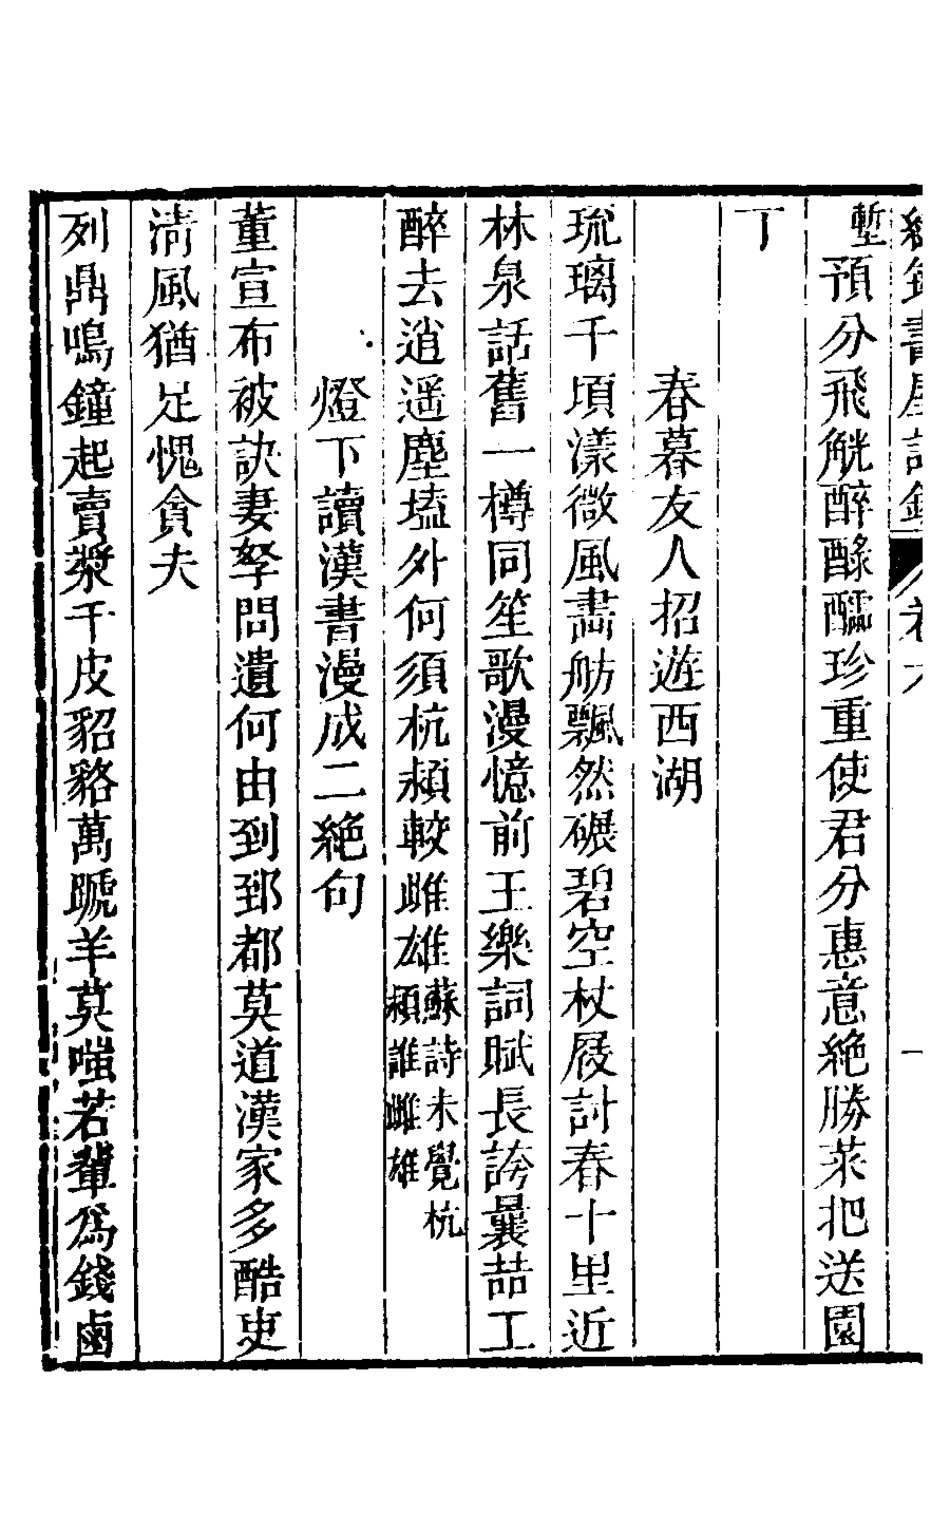 塹預分飛觥醉醁醹珍重使君分惠意絶勝菜把送園
丁
春暮友人招遊西湖
琉璃千頃漾微風畵舫飄然碾碧空杖屐討春十里近
林泉話舊一樽同笙歌漫憶前王樂詞賦長誇曩喆工
醉去逍遥塵壒外何須杭潁較雌雄蘇詩未覺杭潁誰雌雄
燈下讀漢書漫成二絶句
董宣布被訣妻孥問遺何由到郅都莫道漢家多酷吏
淸風猶足愧貪夫
列鼎鳴鐘起賣漿千皮貂貉萬蹏羊莫嗤若輩爲錢鹵